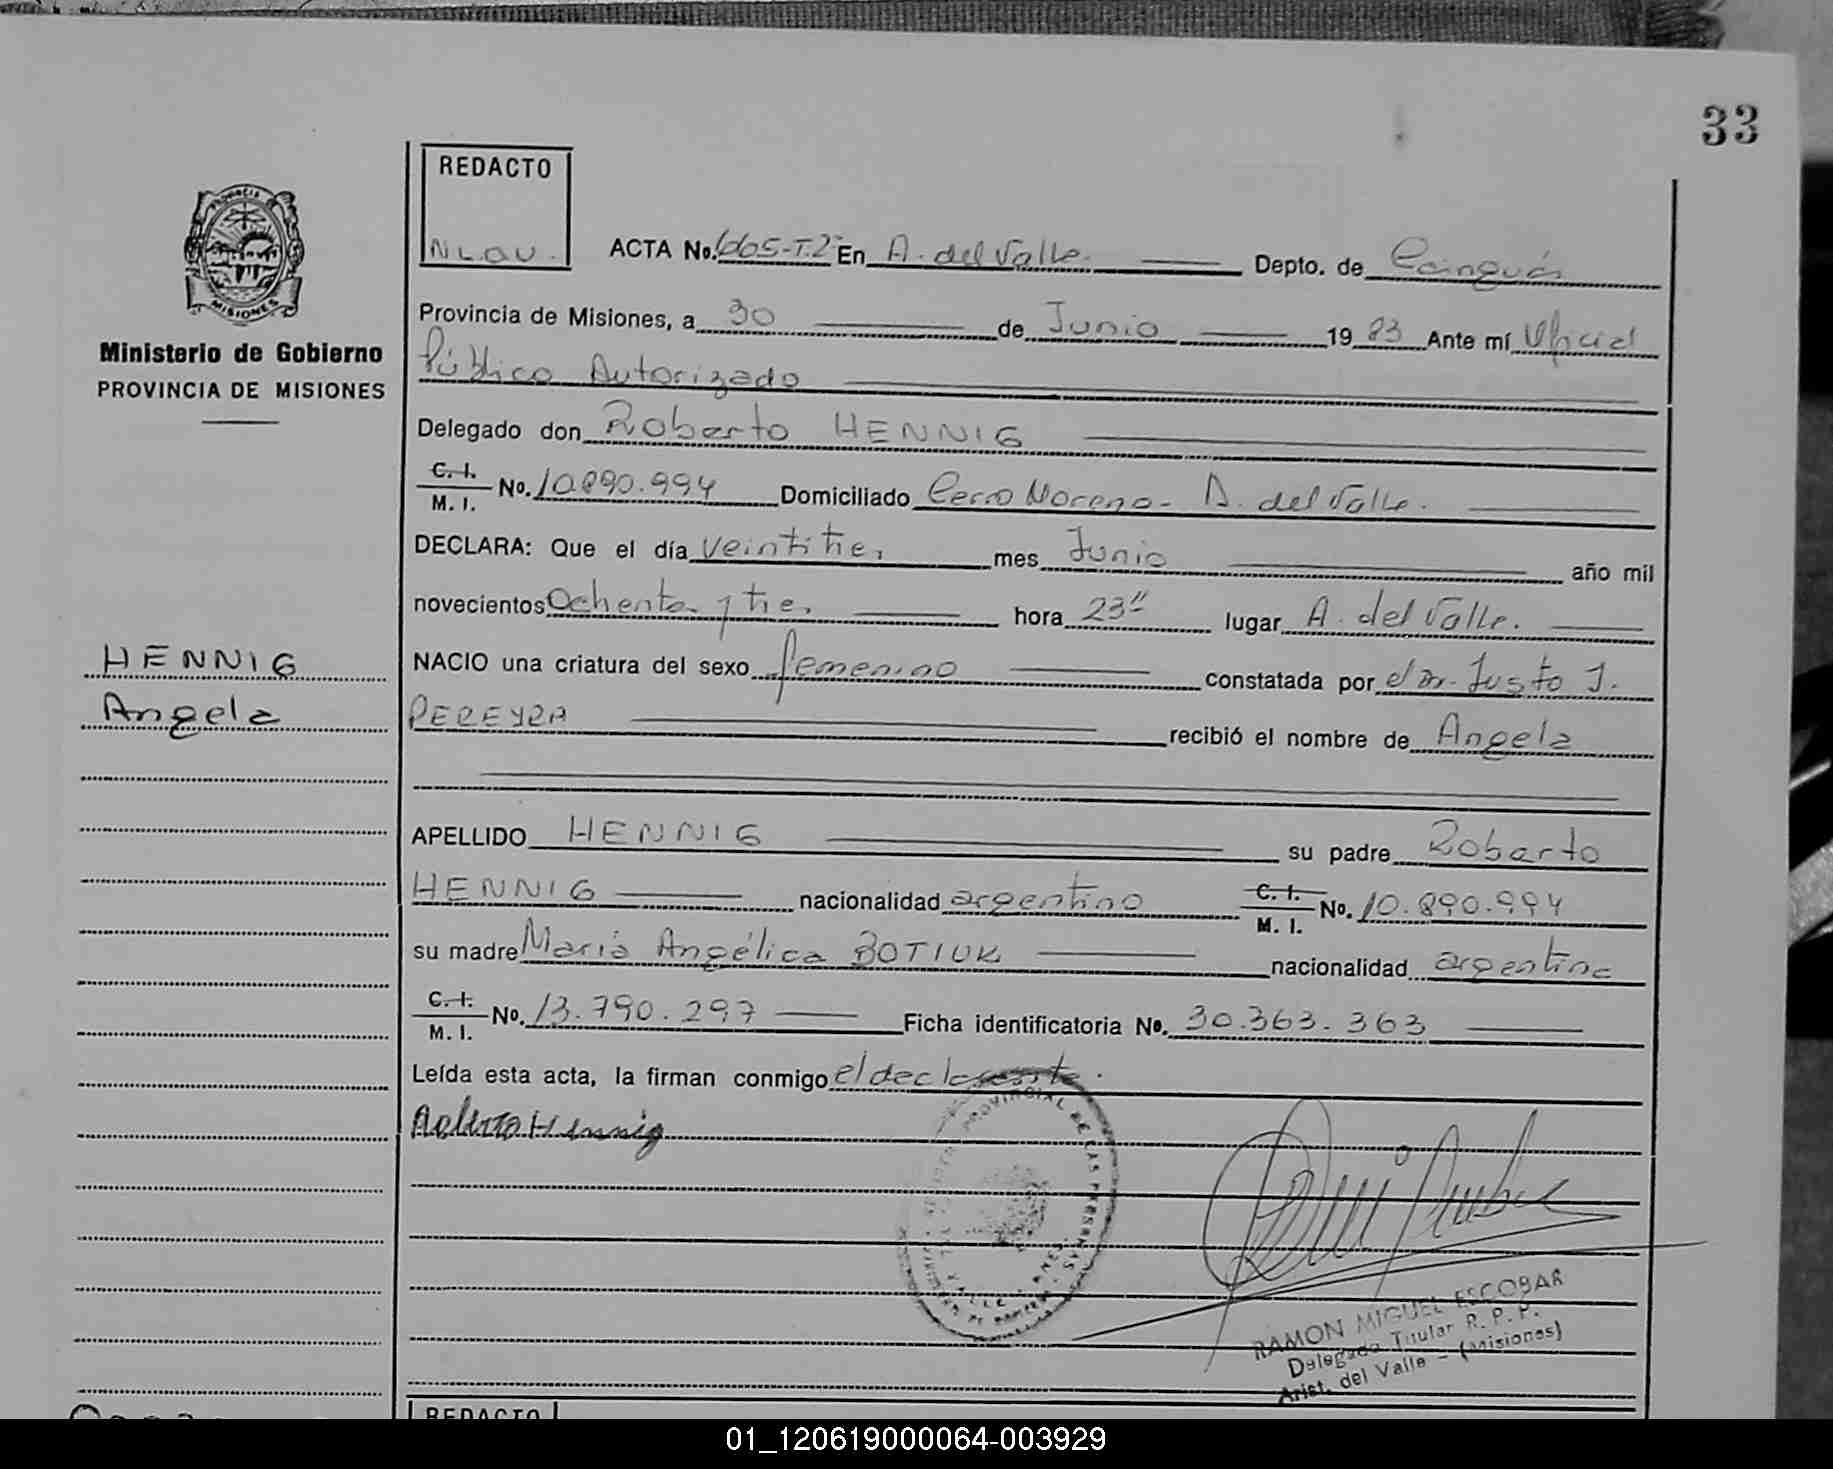 33
REDACTO
N.L.O.U.
PROVINCIA
MISIONES
Ministerio de Gobierno
PROVINCIA DE MISIONES
ACTA No. 605-T.2º En A. del Valle. Depto. de Cainguás
Provincia de Misiones, a 30 de Junio 1983 Ante mí Oficial
Público Autorizado
Delegado don Roberto HENNIG
C. I. / M. I. No. 10.890.994 Domiciliado Cerro Moreno - A. del Valle.
DECLARA: Que el día veintitres mes Junio año mil
novecientos Ochenta y tres hora 23" lugar A. del Valle.
HENNIG
Angela
NACIO una criatura del sexo femenino constatada por el Dr. Justo J.
PEREYRA recibió el nombre de Angela
APELLIDO HENNIG su padre Roberto
HENNIG nacionalidad argentino C. I. / M. I. No. 10.890.994
su madre María Angélica BOTIUK nacionalidad argentina
C. I. / M. I. No. 13.790.297 Ficha identificatoria No. 30.363.363
Leída esta acta, la firman conmigo el declarante.
Roberto Hennig
PROVINCIAL DE LAS PERSONAS
RAMON MIGUEL ESCOBAR
Delegado Titular R. P. P.
Arist. del Valle - (Misiones)
REDACTO
01_120619000064-003929